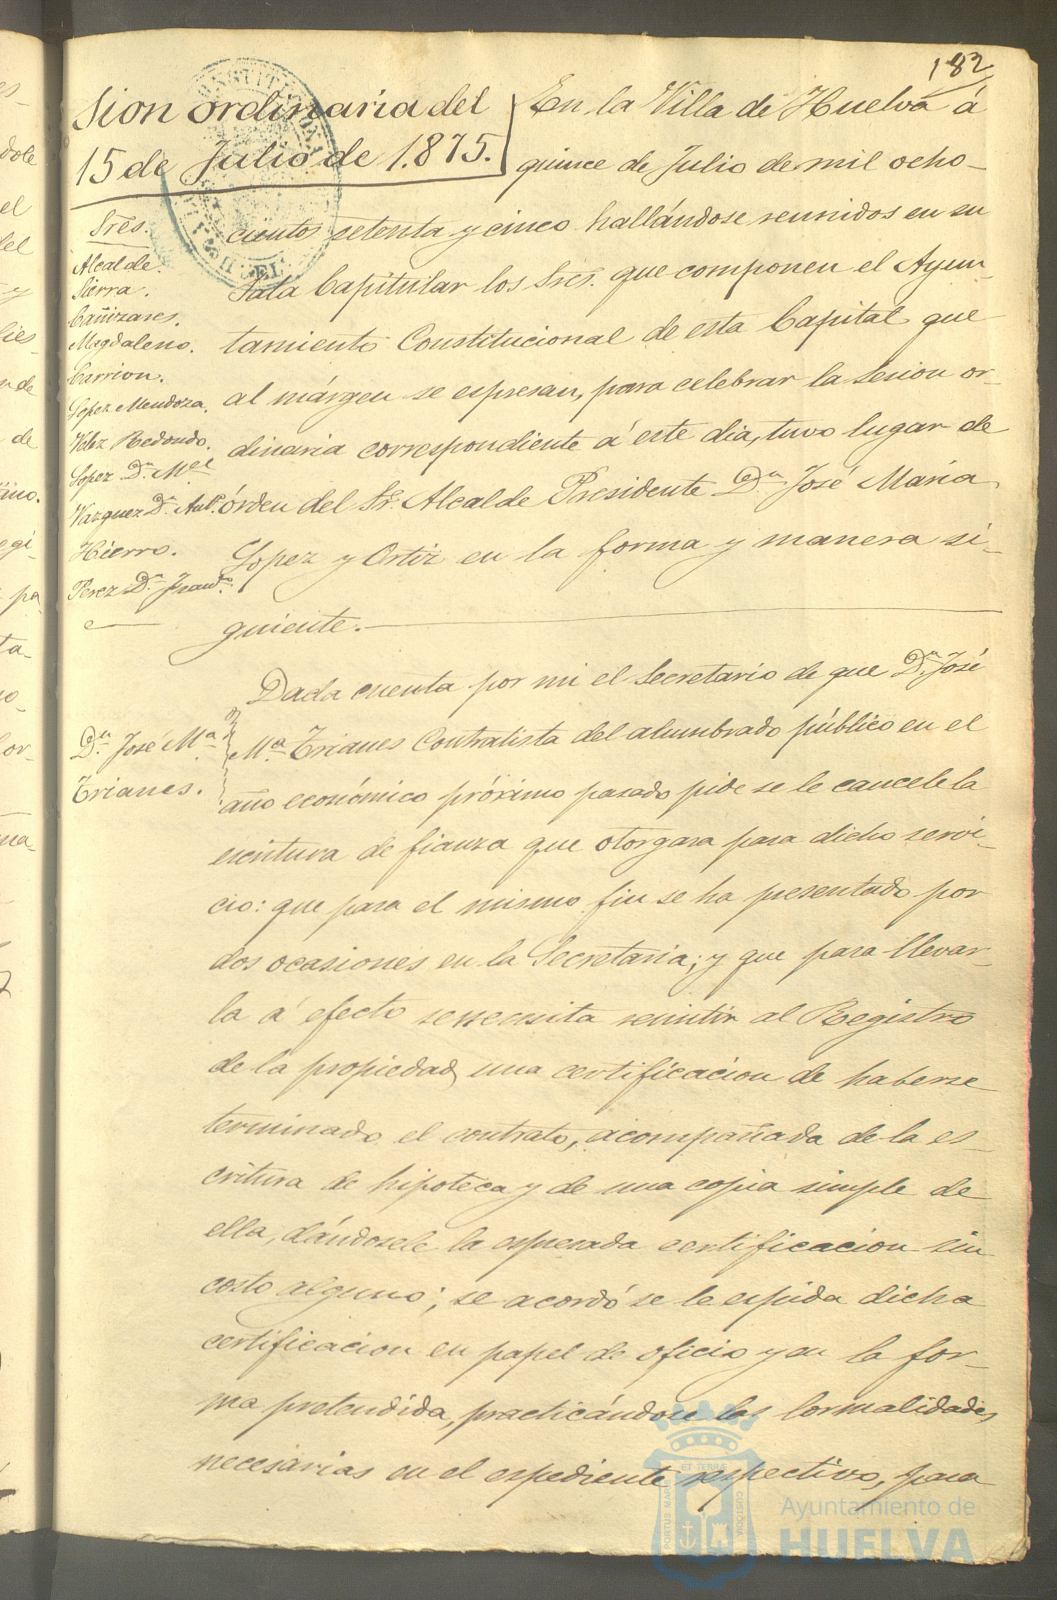 182
Sion ordinaria del
15 de Julio de 1.875.
En la Villa de Huelva á
quince de Julio de mil ocho-
cientos setenta y cinco hallándose reunidos en su
Sala Capitular los Sres. que componen el Ayun-
tamiento Constitucional de esta Capital que
al márgen se espresan, para celebrar la sesion or-
dinaria correspondiente á este dia, tuvo lugar de
órden del Sr. Alcalde Presidente Dn. José María
Lopez y Ortiz en la forma y manera si-
guiente.
Sres.
Alcalde.
Sierra.
Cañizares.
Magdaleno.
Carrion.
Lopez Mendoza.
Velez Redondo.
Lopez Dn. Mel
Vazquez Dn. Anto.
Hierro.
Perez Dn. Franco.
Dn. José Ma.
Trianes.
Dada cuenta por mi el Secretario de que Dn. José
Ma. Trianes Contratista del alumbrado público en el
año económico próximo pasado pide se le cancele la
escritura de fianza que otorgara para dicho servi-
cio: que para el mismo fin se ha presentado por
dos ocasiones en la Secretaria; y que para llevar-
la á efecto se necesita remitir al Registro
de la propiedad una certificacion de haberse
terminado el contrato, acompañada de la es-
critura de hipoteca y de una copia simple de
ella, dándosele la espresada certificacion sin
costo alguno; se acordó se le espida dicha
certificacion en papel de oficio y en la for-
ma pretendida, practicándose las formalidades
necesarias en el espediente respectivo, para
PORTUS MARIS
ET TERRAE
CUSTODIA
Ayuntamiento de
HUELVA